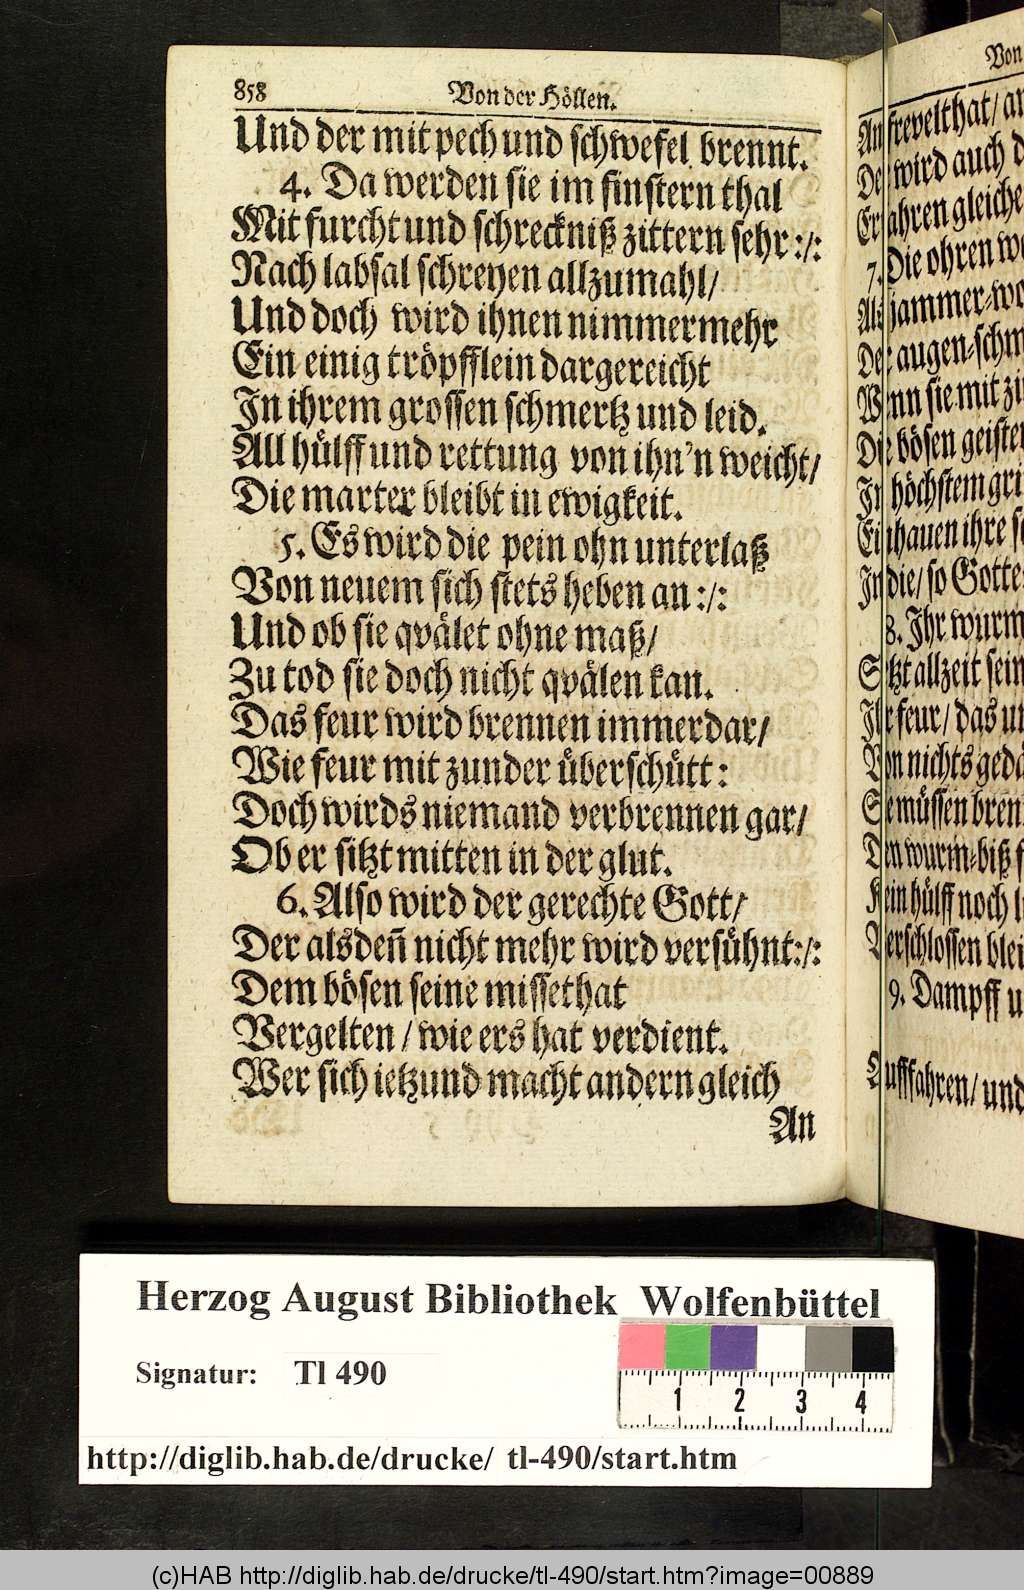 858 Von der Höllen.
Und der mit pech und schwefel brennt.
4. Da werden sie im finstern thal
Mit furcht und schreckniß zittern sehr :/:
Nach labsal schreyen allzumahl/
Und doch wird ihnen nimmermehr
Ein einig tröpfflein dargereicht
In ihrem grossen schmertz und leid.
All hülff und rettung von ihn'n weicht/
Die marter bleibt in ewigkeit.
5. Es wird die pein ohn unterlaß
Von neuem sich stets heben an :/:
Und ob sie qvälet ohne maß/
Zu tod sie doch nicht qvälen kan.
Das feur wird brennen immerdar/
Wie feur mit zunder überschütt:
Doch wirds niemand verbrennen gar/
Ob er sitzt mitten in der glut.
6. Also wird der gerechte Gott/
Der alsdeñ nicht mehr wird versühnt:/:
Dem bösen seine missethat
Vergelten / wie ers hat verdient.
Wer sich ietzund macht andern gleich
An
Von
An frevelthat/
wird auch
gleiche
7. Die ohren
jammer-
Der augen-
Wenn sie mit
Die bösen geister
In höchstem
Einhauen ihre
In die/ so
8. Ihr wurm
Setzt allzeit sein
Ihr feur/ das
Von nichts
Sie müssen
Den wurm-biß
Kein hülff noch
Verschlossen
9. Dampff
Auffahren/ und
Herzog August Bibliothek Wolfenbüttel
Signatur: Tl 490
1 2 3 4
http://diglib.hab.de/drucke/ tl-490/start.htm
(c)HAB http://diglib.hab.de/drucke/tl-490/start.htm?image=00889